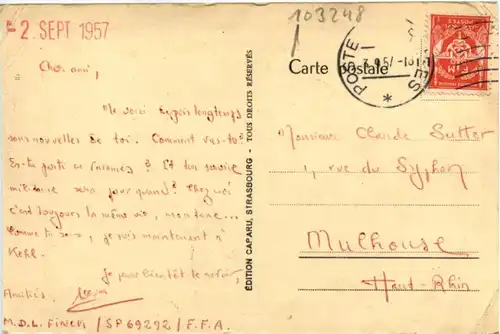 -2. SEPT 1957
103248
Cher ami,
Me voici depuis longtemps
sans nouvelles de toi. Comment vas-tu?
Es-tu parti en vacances? Et ton service
militaire sera pour quand? Chez moi
c'est toujours la même vie, monotone...
Comme tu vois, je suis maintenant à
Kehl.
Je pense bientôt te revoir,
Amitiés,
M.D.L. FINCK / SP 69292 / F.F.A.
ÉDITION CAPARU, STRASBOURG - TOUS DROITS RÉSERVÉS
Carte postale
POSTE
Monsieur Claude Sutter
1, rue du Syphon
Mulhouse
Haut-Rhin